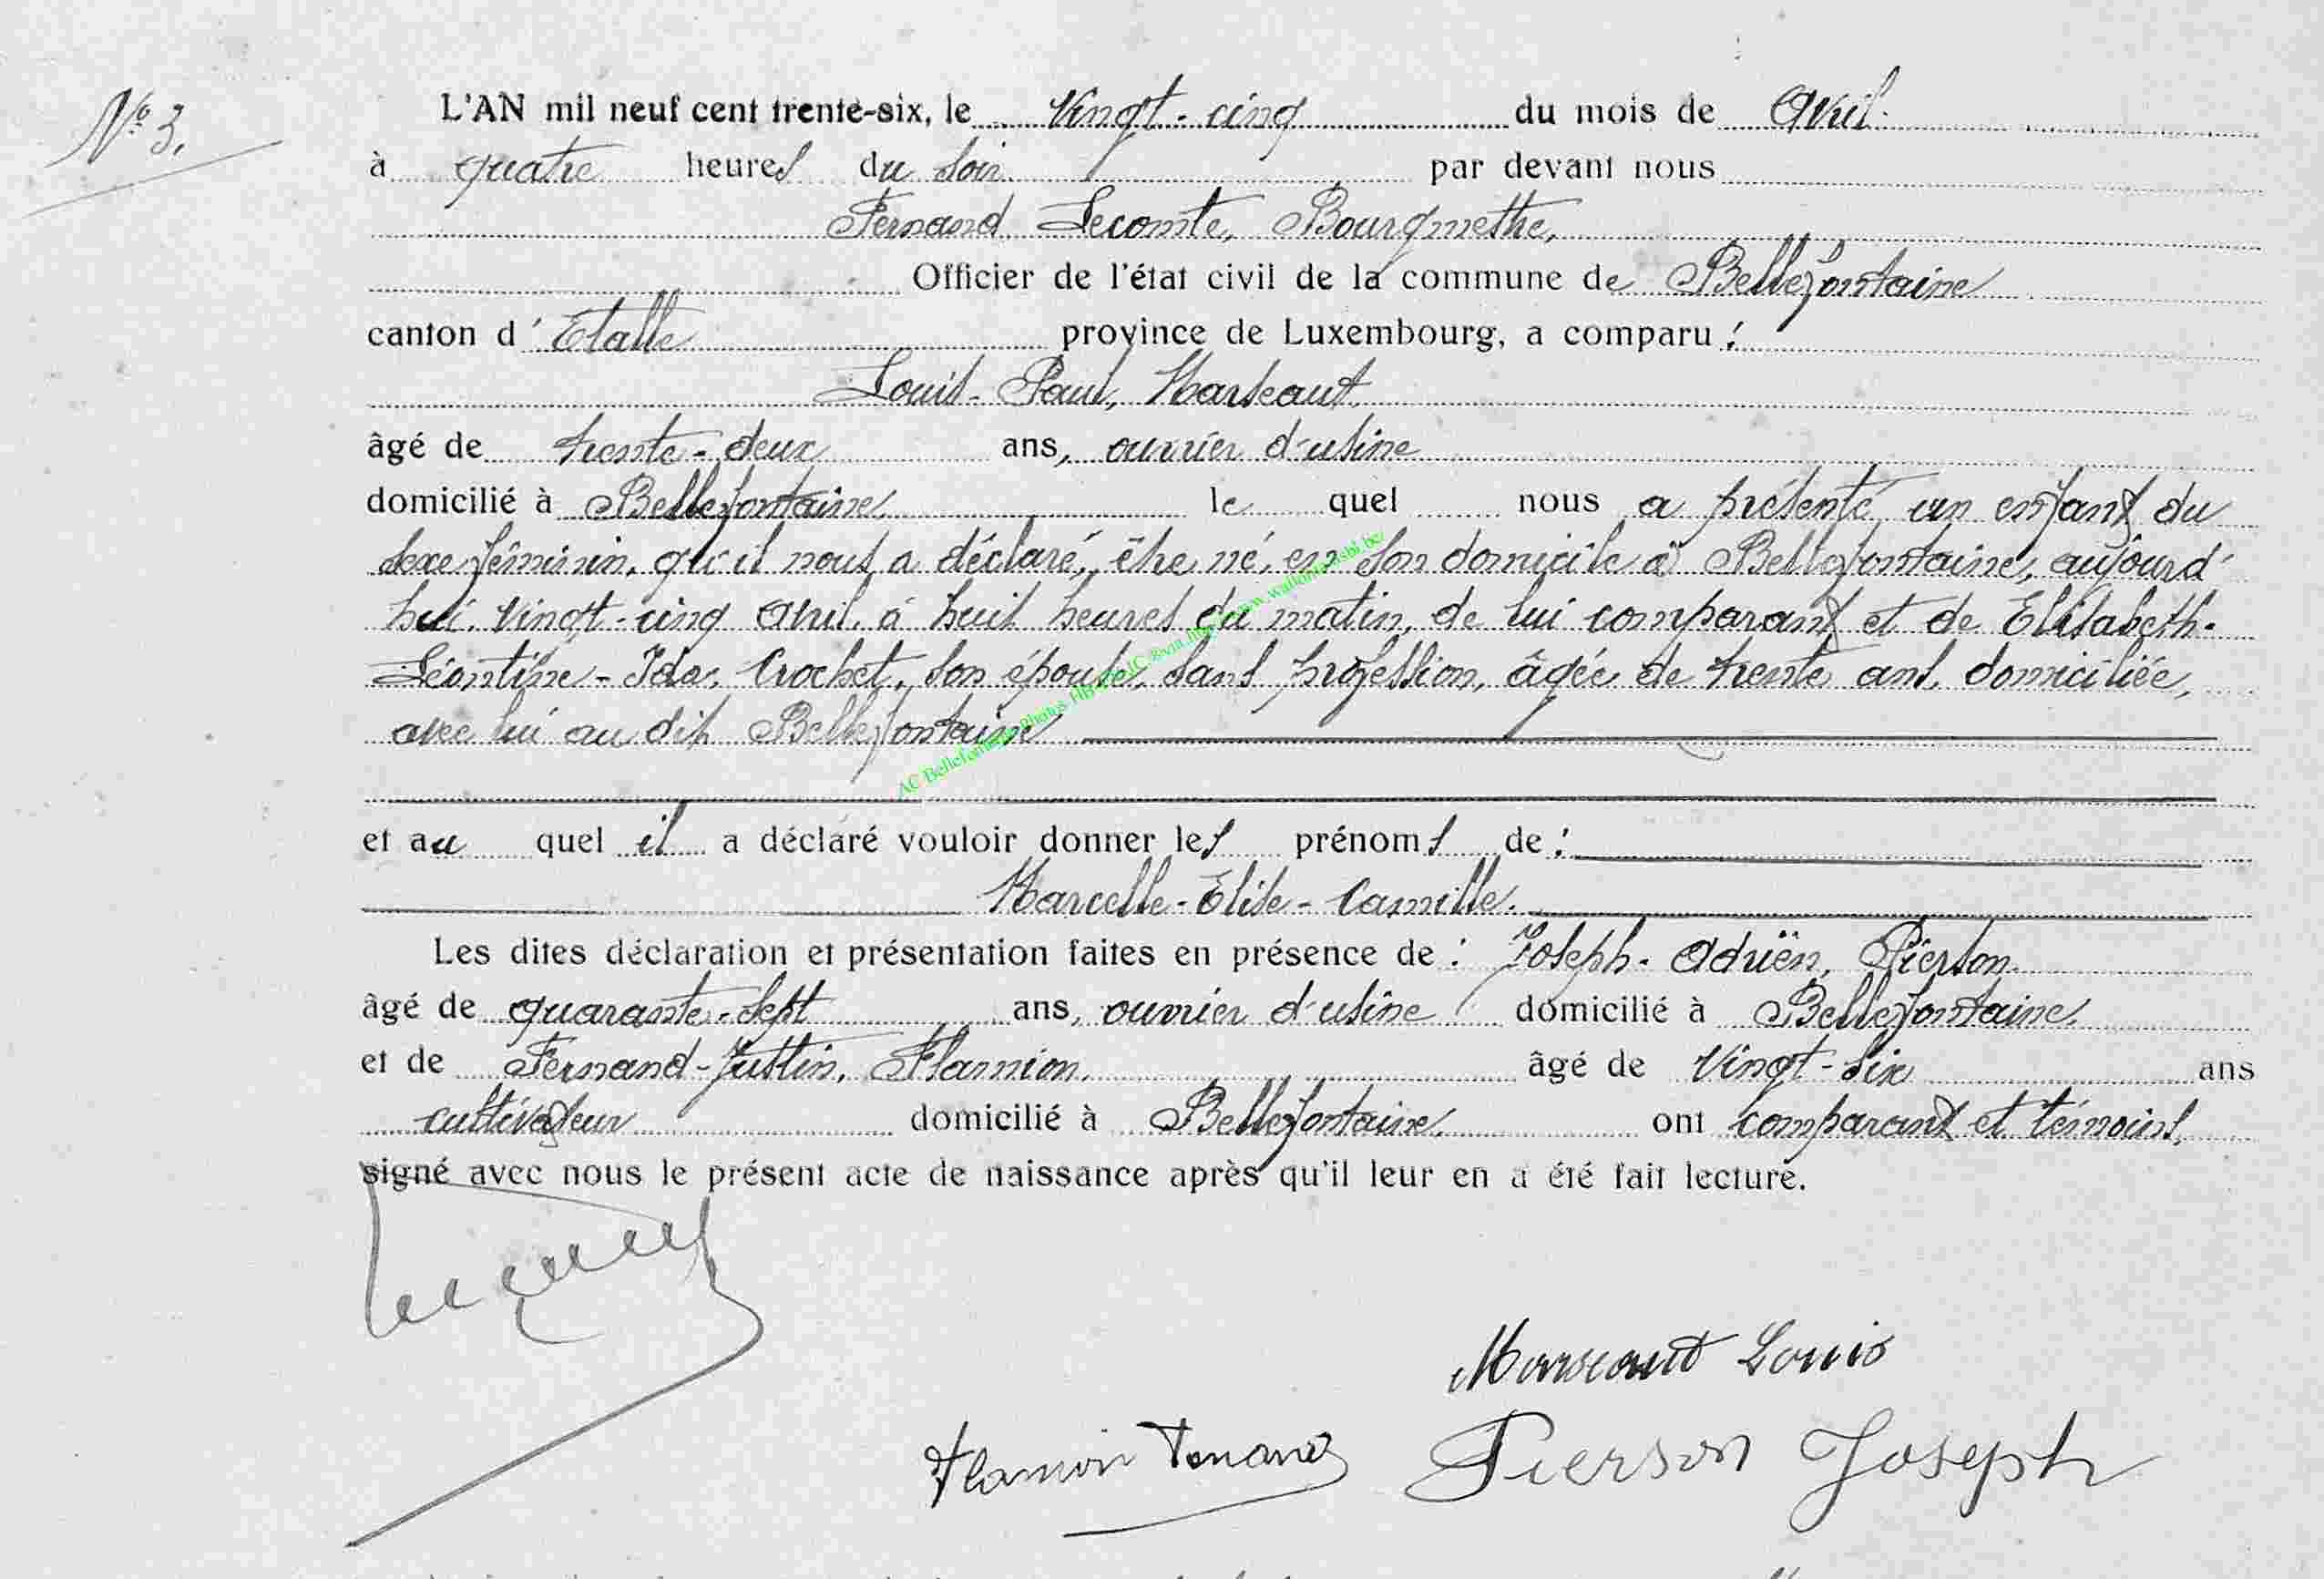 N° 3.
L'AN mil neuf cent trente-six, le Vingt-cinq du mois de Avril.
à quatre heures du soir par devant nous
Fernand Lecomte, Bourgmestre,
Officier de l'état civil de la commune de Bellefontaine
canton d'Etalle province de Luxembourg, a comparu :
Louis-Paul, Marseaut,
âgé de trente-deux ans, ouvrier d'usine
domicilié à Bellefontaine, le quel nous a présenté un enfant du
sexe féminin, qu'il nous a déclaré, être né, en son domicile à Bellefontaine, aujourd'
hui, Vingt-cinq Avril, à huit heures du matin, de lui comparant et de Elisabeth-
Léontine-Ida, Crochet, son épouse, sans profession, âgée de trente ans, domiciliée,
avec lui au dit Bellefontaine
et au quel il a déclaré vouloir donner les prénoms de :
Marcelle-Elise-Camille.
Les dites déclaration et présentation faites en présence de : Joseph-Adrien, Pierson
âgé de quarante-sept ans, ouvrier d'usine domicilié à Bellefontaine,
et de Fernand-Justin, Flamion, âgé de Vingt-six ans
cultivateur domicilié à Bellefontaine, ont comparant et témoins,
signé avec nous le présent acte de naissance après qu'il leur en a été fait lecture.
Marseaut Louis
Flamion Fernand Pierson Joseph